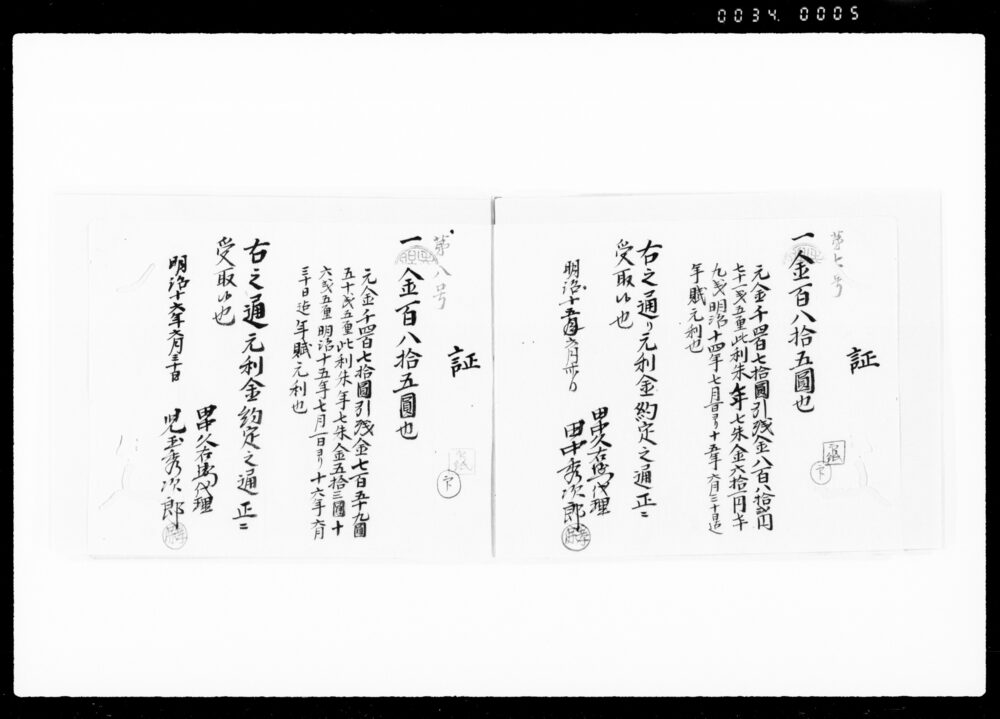 0034. 0005
第七号
証
一金百八拾五圓也
元金千四百七拾圓引残金八百八拾弐円
七十一戋五重此利朱年七朱金六拾一円七十
九戋明治十四年七月一日ヨリ十五年六月三十日迠
年賦元利也
右之通り元利金約定之通正ニ
受取候也
明治十五年六月卅日
代理
田中秀次郎
第八号
証
一金百八拾五圓也
元金千四百七拾圓引残金七百五十九圓
五十戋五重此利朱年七朱金五拾三圓十
六戋五重明治十五年七月一日ヨリ十六年六月
三十日迠年賦元利也
右之通元利金約定之通正ニ
受取候也
明治十六年六月三十日
代理
児玉秀次郎